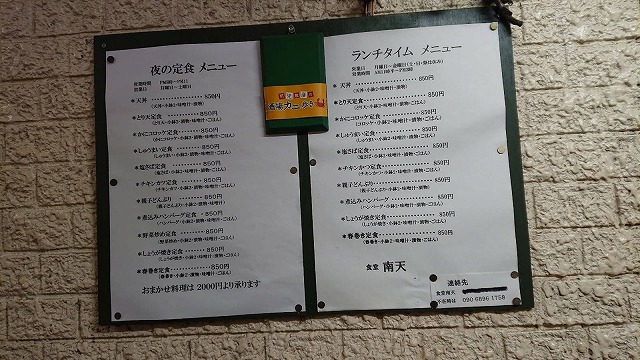 夜の定食 メニュー
営業時間 PM5時～PM11
営業日 月曜日～土曜日
＊天丼 ‥‥‥‥‥‥ 850円
(天丼・小鉢・味噌汁・漬物)
＊とり天定食 ‥‥‥‥ 850円
(とり天・小鉢2・味噌汁・漬物・ごはん)
＊かにコロッケ定食 ‥‥ 850円
(かにコロッケ・小鉢2・味噌汁・漬物・ごはん)
＊しゅうまい定食 ‥‥‥ 850円
(しゅうまい・小鉢2・味噌汁・漬物・ごはん)
＊塩さば定食 ‥‥‥‥ 850円
(塩さば・小鉢2・味噌汁・漬物・ごはん)
＊チキンカツ定食 ‥‥‥ 850円
(チキンカツ・小鉢2・味噌汁・漬物・ごはん)
＊親子どんぶり ‥‥‥‥ 850円
(親子どんぶり・小鉢2・味噌汁・漬物)
＊煮込みハンバーグ定食 ‥ 850円
(ハンバーグ・小鉢2・味噌汁・漬物・ごはん)
＊野菜炒め定食 ‥‥‥‥ 850円
(野菜炒め・小鉢2・味噌汁・漬物・ごはん)
＊しょうが焼き定食 ‥‥ 850円
(しょうが焼き・小鉢2・味噌汁・漬物・ごはん)
＊春巻き定食 ‥‥‥‥ 850円
(春巻き・小鉢2・味噌汁・漬物・ごはん)
おまかせ料理は 2000円より承ります
ランチタイム メニュー
営業日 月曜日～金曜日(土・日・祭は休み)
営業時間 AM11時半～PM2時
＊天丼 ‥‥‥‥‥‥ 850円
(天丼・小鉢・味噌汁・漬物)
＊とり天定食 ‥‥‥‥ 850円
(とり天・小鉢2・味噌汁・漬物・ごはん)
＊かにコロッケ定食 ‥‥ 850円
(コロッケ・小鉢2・味噌汁・漬物・ごはん)
＊しゅうまい定食 ‥‥‥ 850円
(しゅうまい・小鉢2・味噌汁・漬物・ごはん)
＊塩さば定食 ‥‥‥‥ 850円
(塩さば・小鉢2・味噌汁・漬物・ごはん)
＊チキンかつ定食 ‥‥‥ 850円
(チキンかつ・小鉢2・味噌汁・漬物・ごはん)
＊親子どんぶり ‥‥‥‥ 850円
(親子どんぶり・小鉢2・味噌汁・漬物)
＊煮込みハンバーグ ‥‥ 850円
(ハンバーグ・小鉢2・味噌汁・漬物・ごはん)
＊しょうが焼き定食 ‥‥ 850円
(しょうが焼き・小鉢2・味噌汁・漬物・ごはん)
＊春巻き定食 ‥‥‥‥ 850円
(春巻き・小鉢2・味噌汁・漬物・ごはん)
食堂 南天
連絡先
食堂南天
不在時は 090 6896 1758